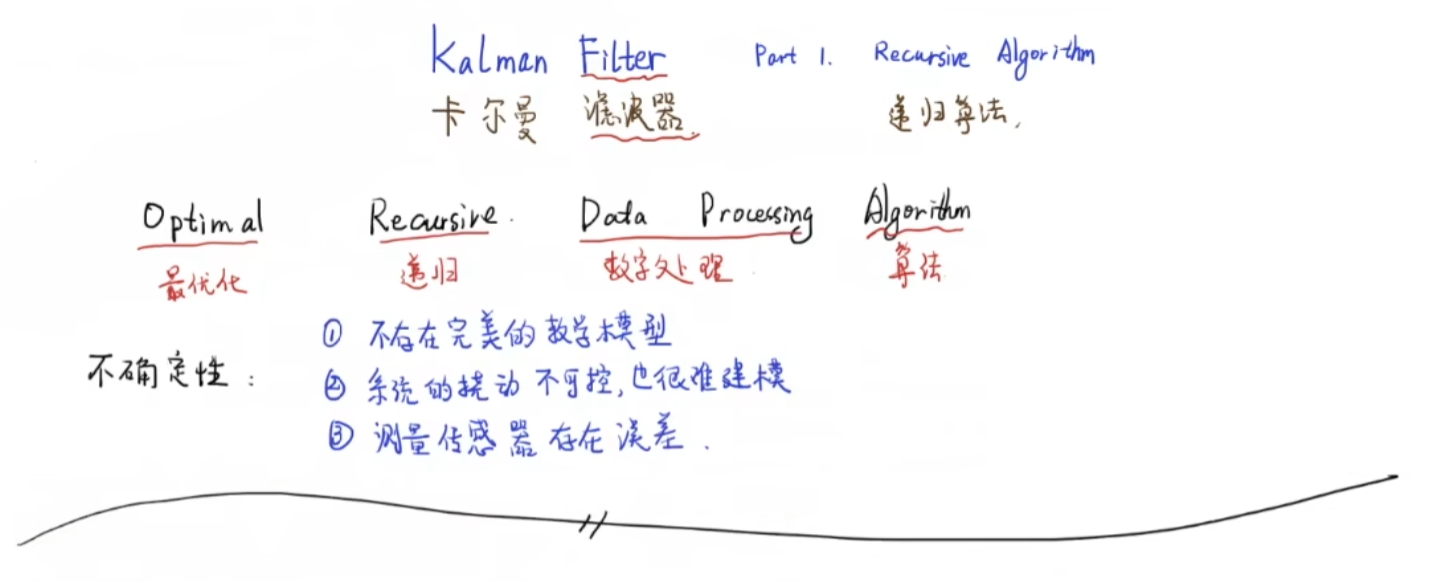 Kalman Filter Part 1. Recursive Algorithm
卡尔曼 滤波器. 递归算法.
Optimal Recursive. Data Processing Algorithm
最优化 递归 数字处理 算法
不确定性:
① 不存在完美的数学模型
② 系统的扰动不可控,也很难建模
③ 测量传感器存在误差.